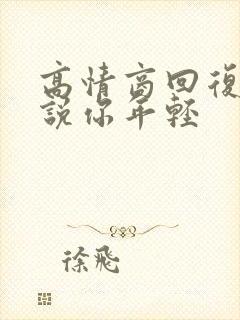 高情商回復
說你年輕
徐飛